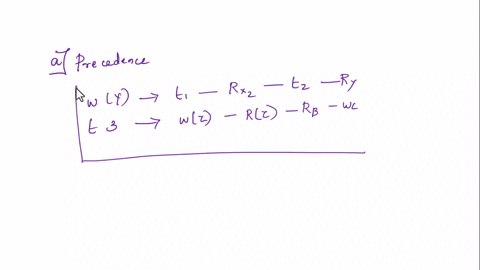 a) Precedence
W(Y) → t1 — Rx2 — t2 — Ry
t3 → w(z) — R(z) — RB — wc